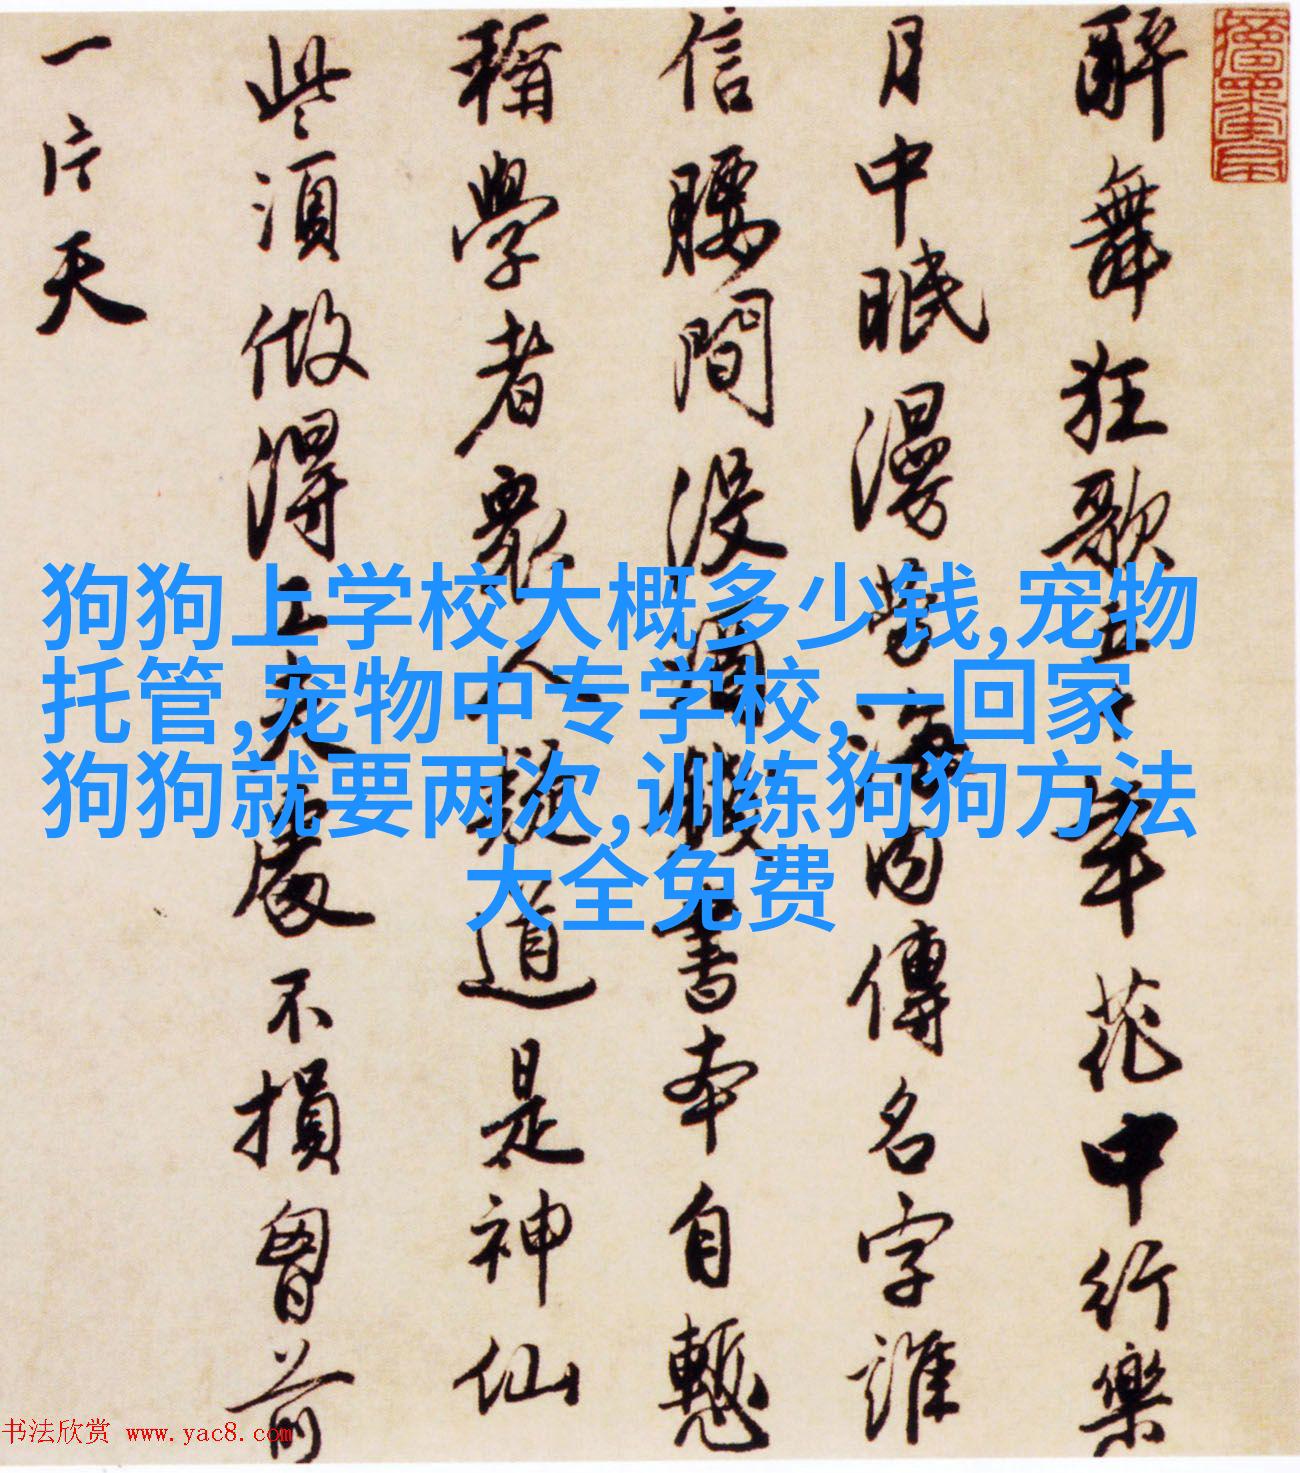 醉舞狂歌五十年花中行樂
月中眠漫勞海内傳名字誰
信腰間沒酒錢書本自慙
稱學者眾人疑道是神仙
些須做得工夫處不損胷前
一片天
狗狗上学校大概多少钱,宠物
托管,宠物中专学校,一回家
狗狗就要两次,训练狗狗方法
大全免费
书法欣赏 www.yac8.com